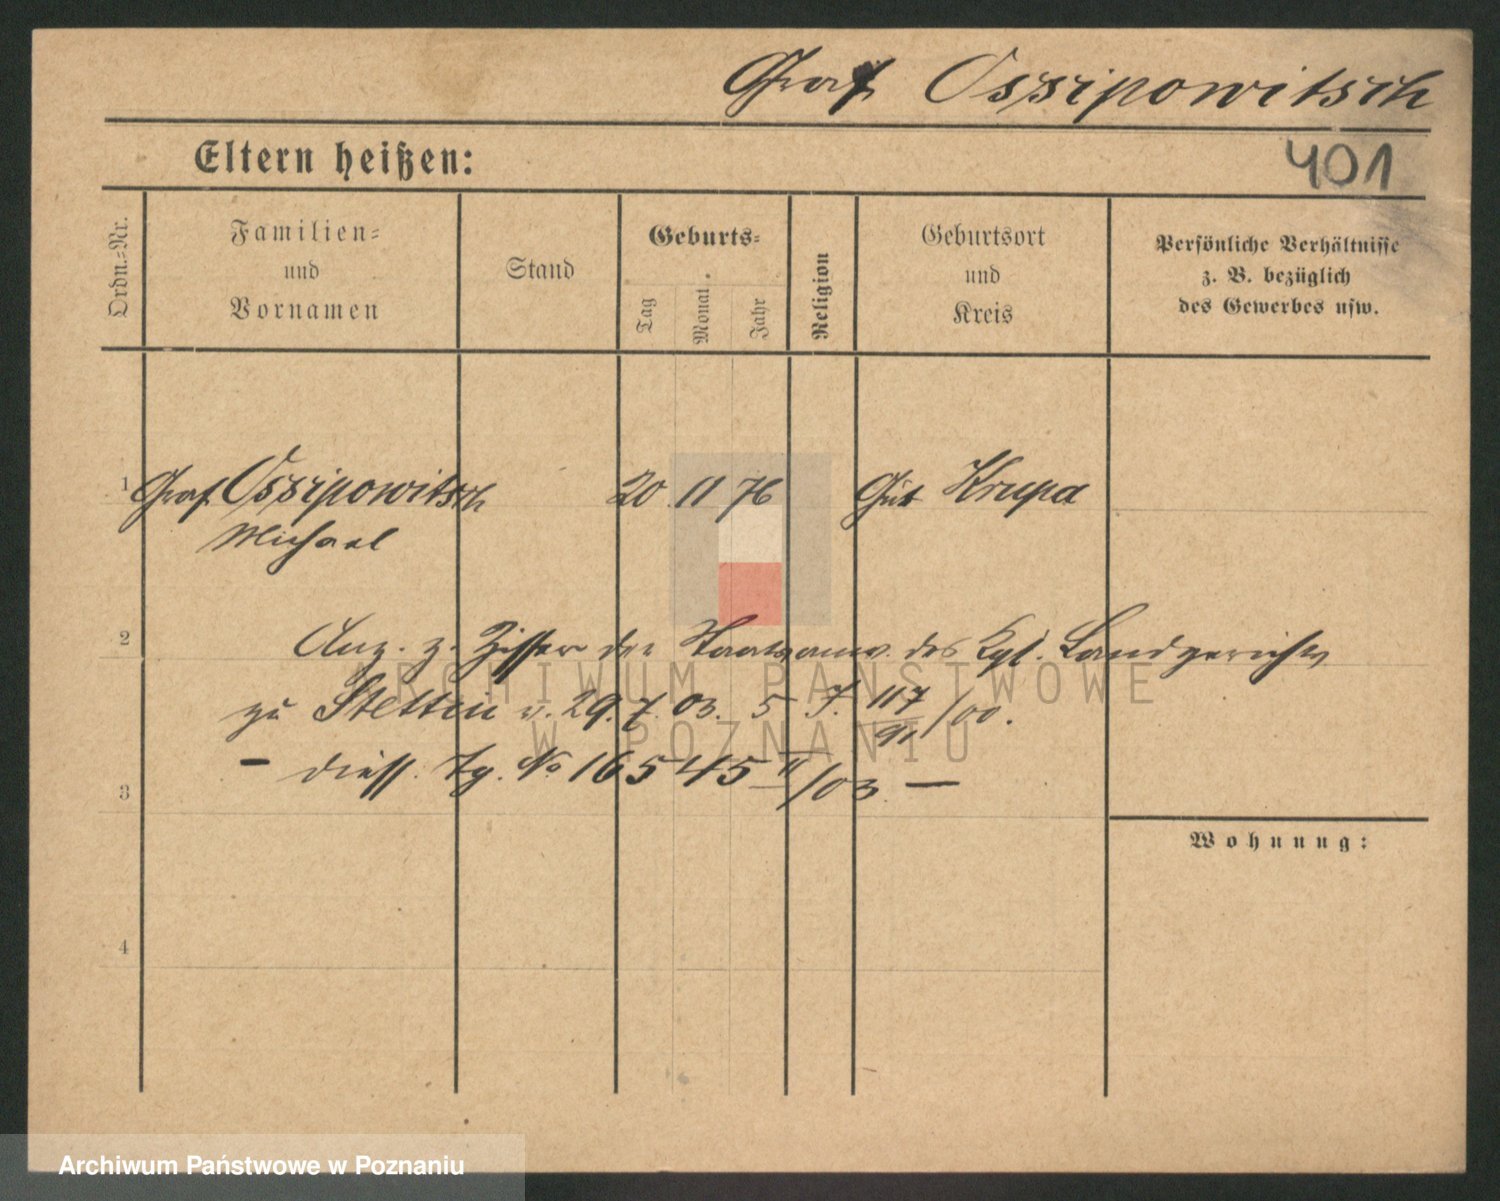 Graf Ossipowitsch
401
Eltern heißen:
Ordn.-Nr.
Familien-
und
Vornamen
Stand
Geburts-
Tag
Monat.
Jahr
Religion
Geburtsort
und
Kreis
Persönliche Verhältnisse
z. B. bezüglich
des Gewerbes usw.
1 Graf Ossipowitsch 20 11 76 Gut Krupa
Michael
2
Anz. z. Ziffer der Staatsanw. des Kgl. Landgerichts
zu Stettin v. 29. 7. 03. 5 J. 117/91/00.
- diess. Tg. No 16545 II/03. -
3
Wohnung:
4
ARCHIWUM PAŃSTWOWE
W POZNANIU
Archiwum Państwowe w Poznaniu